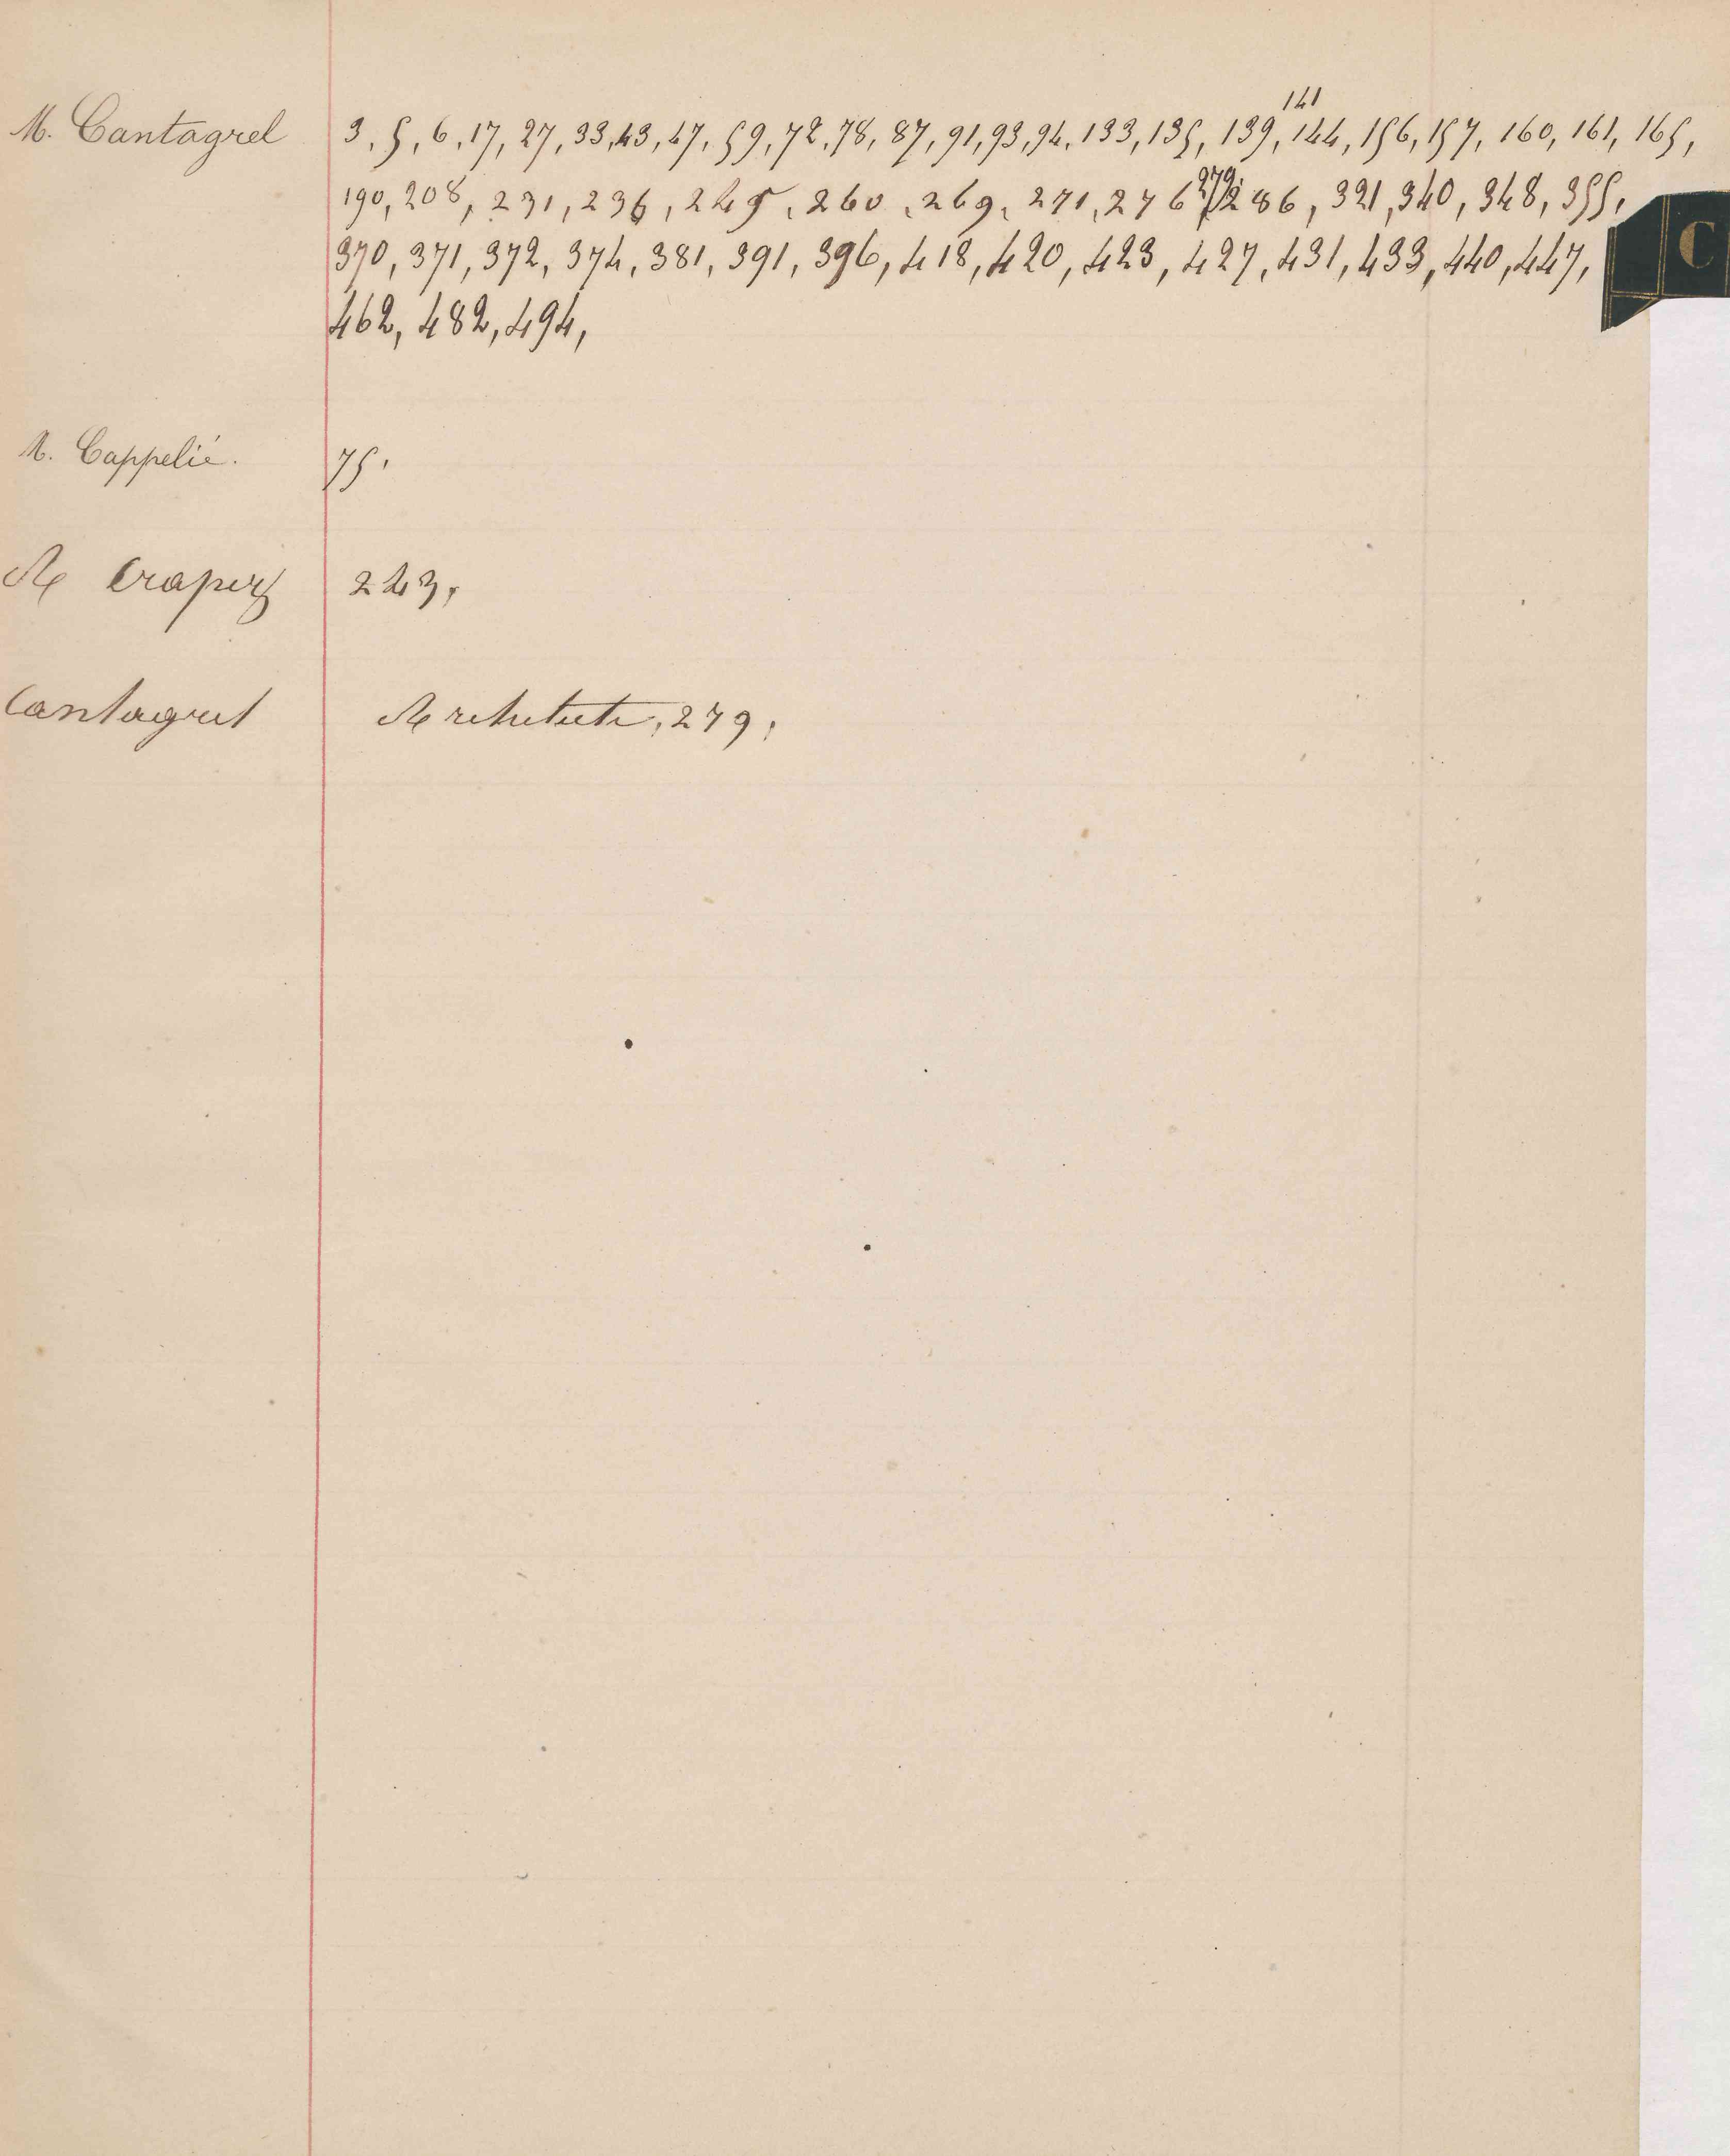 141
M. Cantagrel 3, 5, 6, 17, 27, 33, 43, 47, 59, 72, 78, 87, 91, 93, 94, 133, 135, 139, 144, 156, 157, 160, 161, 165,
279
190, 208, 231, 236, 245, 260, 269, 271, 276, 286, 321, 340, 348, 355,
C
370, 371, 372, 374, 381, 391, 396, 418, 420, 423, 427, 431, 433, 440, 447,
462, 482, 494,
M. Cappelié. 75.
M Crapez 243,
Cantagrel Architecte, 279,